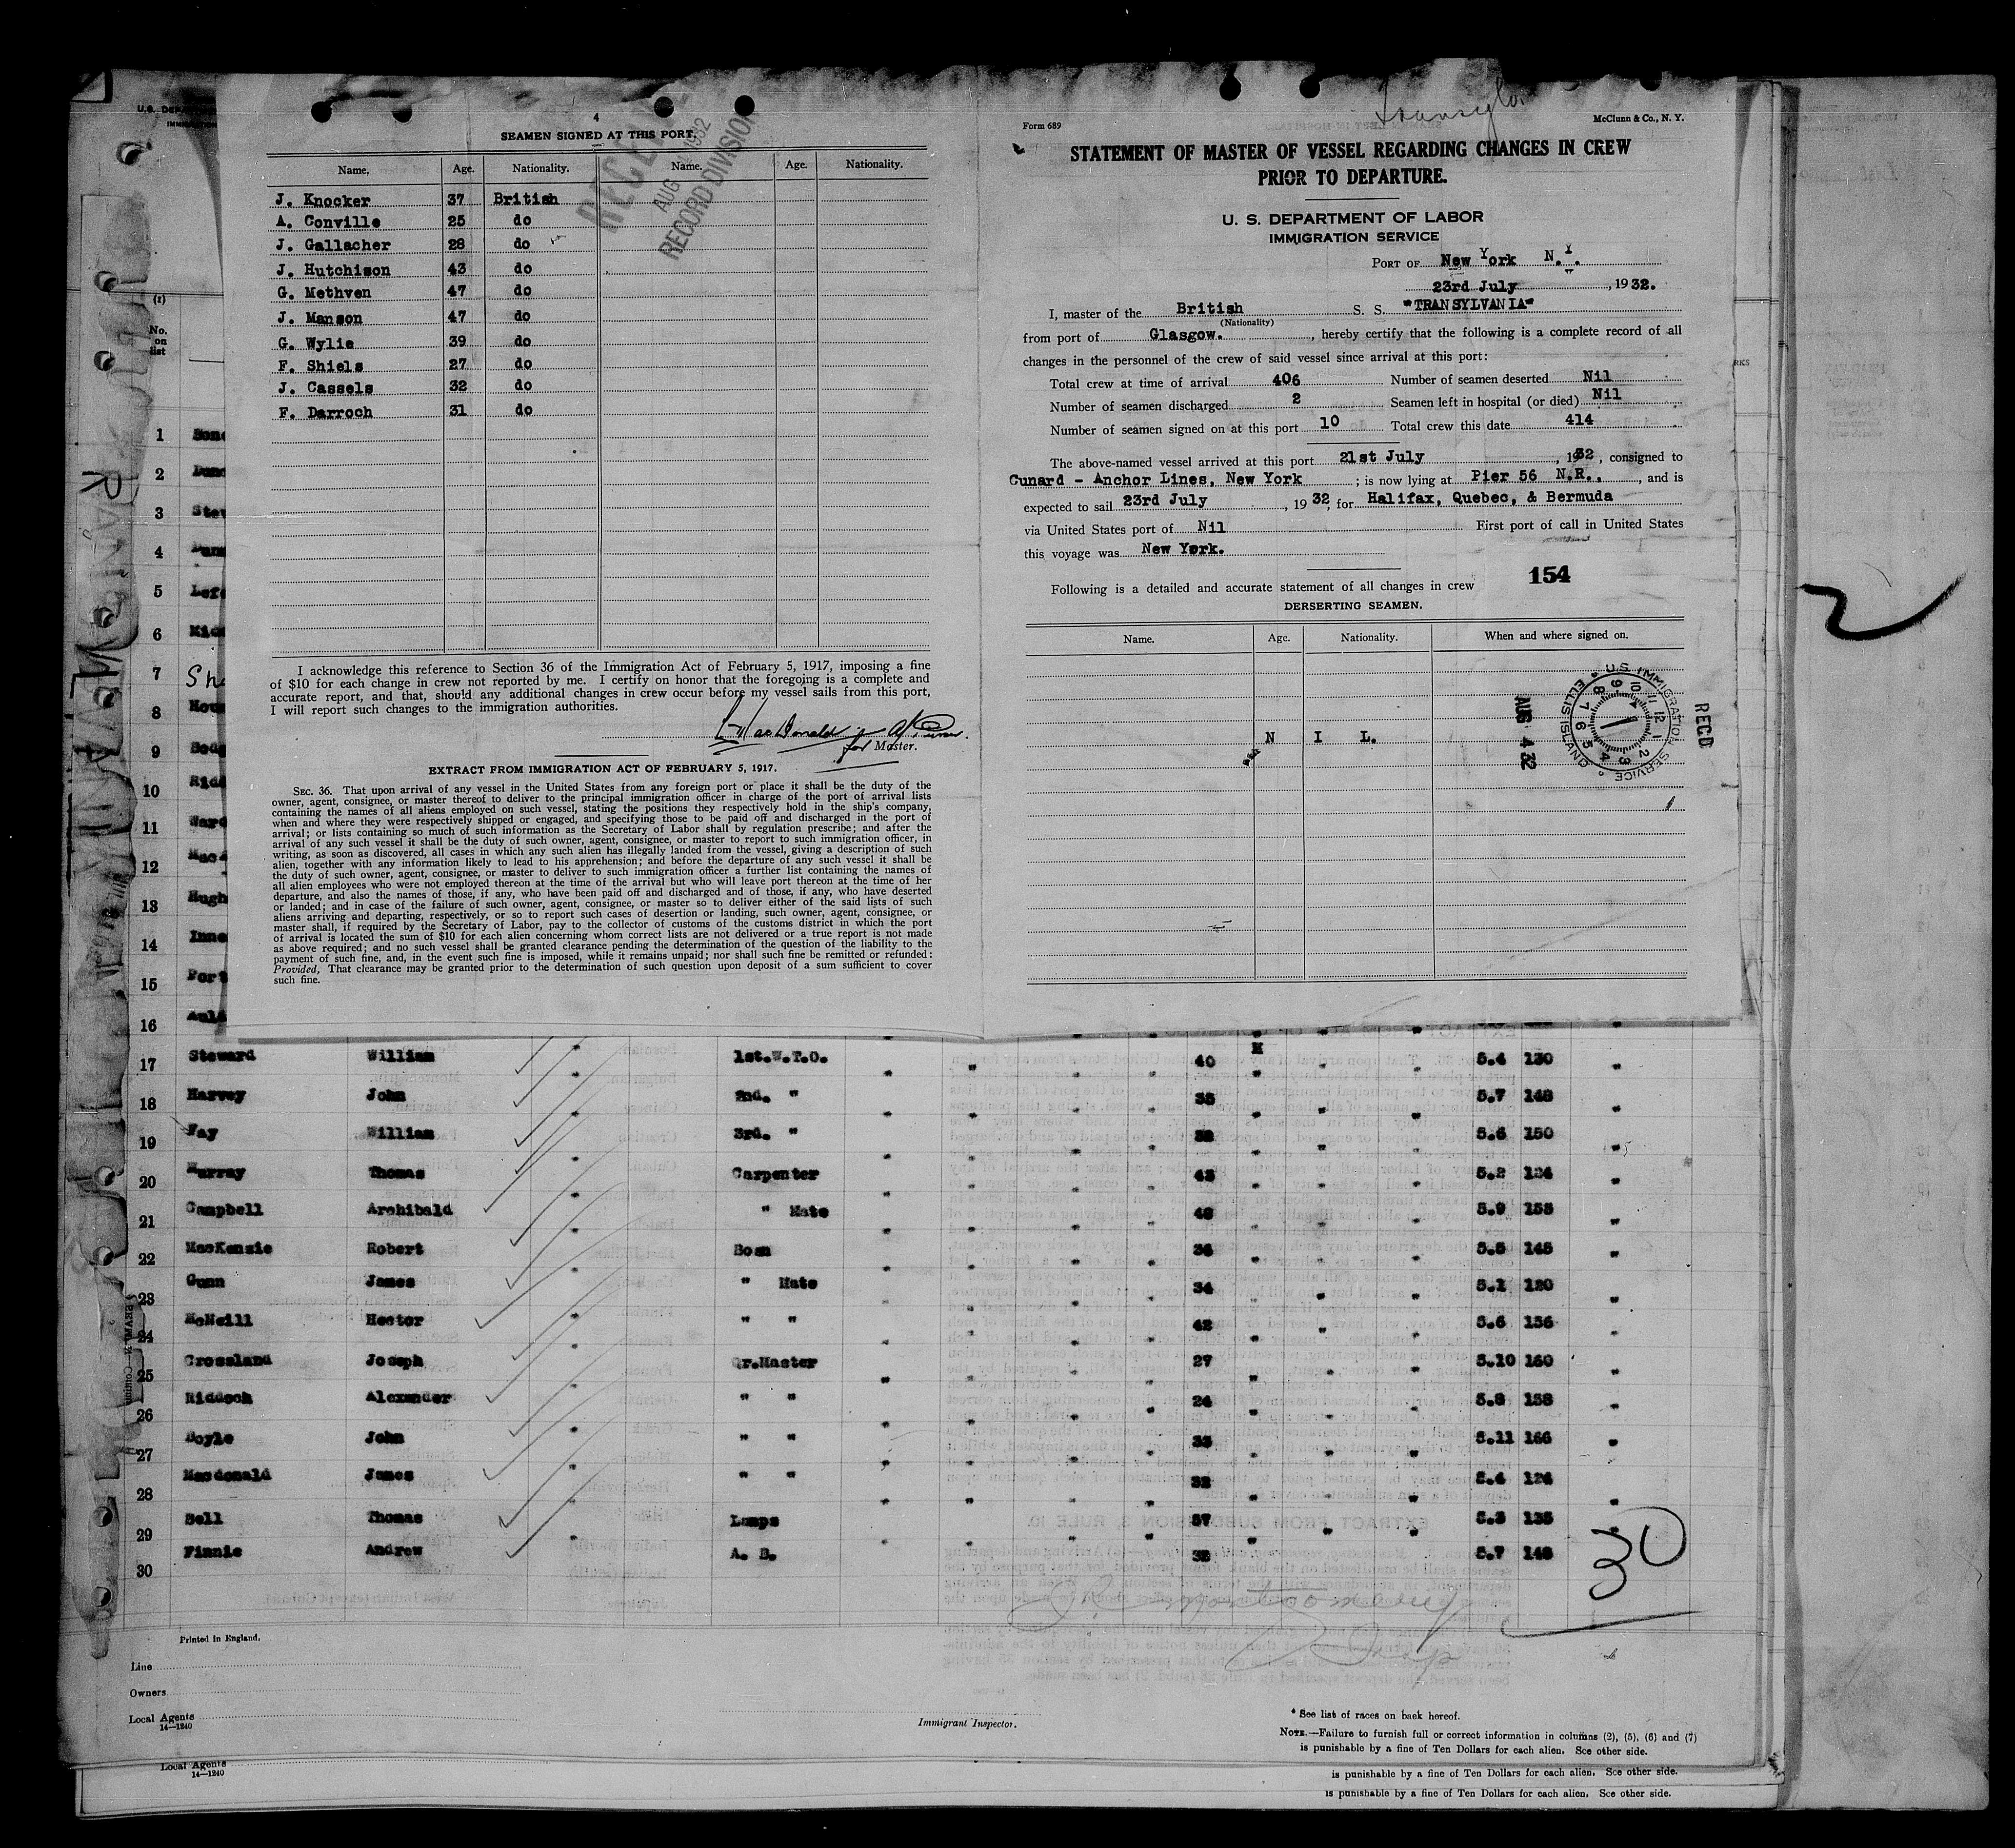 4
SEAMEN SIGNED AT THIS PORT.
RECEIVED
AUG 1932
RECORD DIVISION
Name. Age. Nationality. Name. Age. Nationality.
J. Knocker 37 British
A. Conville 25 do
J. Gallacher 28 do
J. Hutchison 43 do
G. Methven 47 do
J. Manson 47 do
G. Wylie 39 do
F. Shiels 27 do
J. Cassels 32 do
F. Darroch 31 do
I acknowledge this reference to Section 36 of the Immigration Act of February 5, 1917, imposing a fine
of $10 for each change in crew not reported by me. I certify on honor that the foregoing is a complete and
accurate report, and that, should any additional changes in crew occur before my vessel sails from this port,
I will report such changes to the immigration authorities.
for Master.
EXTRACT FROM IMMIGRATION ACT OF FEBRUARY 5, 1917.
SEC. 36. That upon arrival of any vessel in the United States from any foreign port or place it shall be the duty of the
owner, agent, consignee, or master thereof to deliver to the principal immigration officer in charge of the port of arrival lists
containing the names of all aliens employed on such vessel, stating the positions they respectively hold in the ship's company,
when and where they were respectively shipped or engaged, and specifying those to be paid off and discharged in the port of
arrival; or lists containing so much of such information as the Secretary of Labor shall by regulation prescribe; and after the
arrival of any such vessel it shall be the duty of such owner, agent, consignee, or master to report to such immigration officer, in
writing, as soon as discovered, all cases in which any such alien has illegally landed from the vessel, giving a description of such
alien, together with any information likely to lead to his apprehension; and before the departure of any such vessel it shall be
the duty of such owner, agent, consignee, or master to deliver to such immigration officer a further list containing the names of
all alien employees who were not employed thereon at the time of the arrival but who will leave port thereon at the time of her
departure, and also the names of those, if any, who have been paid off and discharged and of those, if any, who have deserted
or landed; and in case of the failure of such owner, agent, consignee, or master so to deliver either of the said lists of such
aliens arriving and departing, respectively, or so to report such cases of desertion or landing, such owner, agent, consignee, or
master shall, if required by the Secretary of Labor, pay to the collector of customs of the customs district in which the port
of arrival is located the sum of $10 for each alien concerning whom correct lists are not delivered or a true report is not made
as above required; and no such vessel shall be granted clearance pending the determination of the question of the liability to the
payment of such fine, and, in the event such fine is imposed, while it remains unpaid; nor shall such fine be remitted or refunded:
Provided, That clearance may be granted prior to the determination of such question upon deposit of a sum sufficient to cover
such fine.
Form 689
McClunn & Co., N. Y.
STATEMENT OF MASTER OF VESSEL REGARDING CHANGES IN CREW
PRIOR TO DEPARTURE.
U. S. DEPARTMENT OF LABOR
IMMIGRATION SERVICE
PORT OF New York N.Y.
23rd July, 1932.
I, master of the British S. S. "TRANSYLVANIA"
(Nationality)
from port of Glasgow. , hereby certify that the following is a complete record of all
changes in the personnel of the crew of said vessel since arrival at this port:
Total crew at time of arrival 406 Number of seamen deserted Nil
Number of seamen discharged 2 Seamen left in hospital (or died) Nil
Number of seamen signed on at this port 10 Total crew this date 414
The above-named vessel arrived at this port 21st July, 1932, consigned to
Cunard - Anchor Lines, New York ; is now lying at Pier 56 N.R., and is
expected to sail 23rd July, 1932, for Halifax, Quebec, & Bermuda
via United States port of Nil First port of call in United States
this voyage was New York.
154
Following is a detailed and accurate statement of all changes in crew
DERSERTING SEAMEN.
Name. Age. Nationality. When and where signed on.
N I L.
AUG 4 32
U.S. IMMIGRATION SERVICE ELLIS ISLAND
RECD
(1)
No.
on
list
1
2
3
4
5
6
7
8
9
10
11
12
13
14
15
16
17 Steward William 1st.W.T.O. 40 " 5.4 130 "
18 Harvey John 2nd. " 35 " 5.7 148 "
19 Fay William 3rd. " " 5.6 150 "
20 Murray Thomas Carpenter 43 " 5.2 134 "
21 Campbell Archibald " Mate 48 " 5.9 158 "
22 MacKenzie Robert Bosn 36 " 5.5 145 "
23 Gunn James " Mate 34 " 5.1 120 "
24 McNeill Hector " " 42 " 5.6 156 "
25 Crossland Joseph Qr.Master 27 " 5.10 160 "
26 Riddoch Alexander " " 24 " 5.8 158 "
27 Boyle John " " 33 " 5.11 166 "
28 Macdonald James " " 32 " 5.4 124 "
29 Bell Thomas Lamps 37 " 5.3 135 "
30 Finnie Andrew A. B. 32 5.7 148
30
Printed in England.
Line
Owners
Local Agents
14—1240
Immigrant Inspector.
* See list of races on back hereof.
NOTE.—Failure to furnish full or correct information in columns (2), (5), (6) and (7)
is punishable by a fine of Ten Dollars for each alien. See other side.
Local Agents
14—1240
is punishable by a fine of Ten Dollars for each alien. See other side.
is punishable by a fine of Ten Dollars for each alien. See other side.